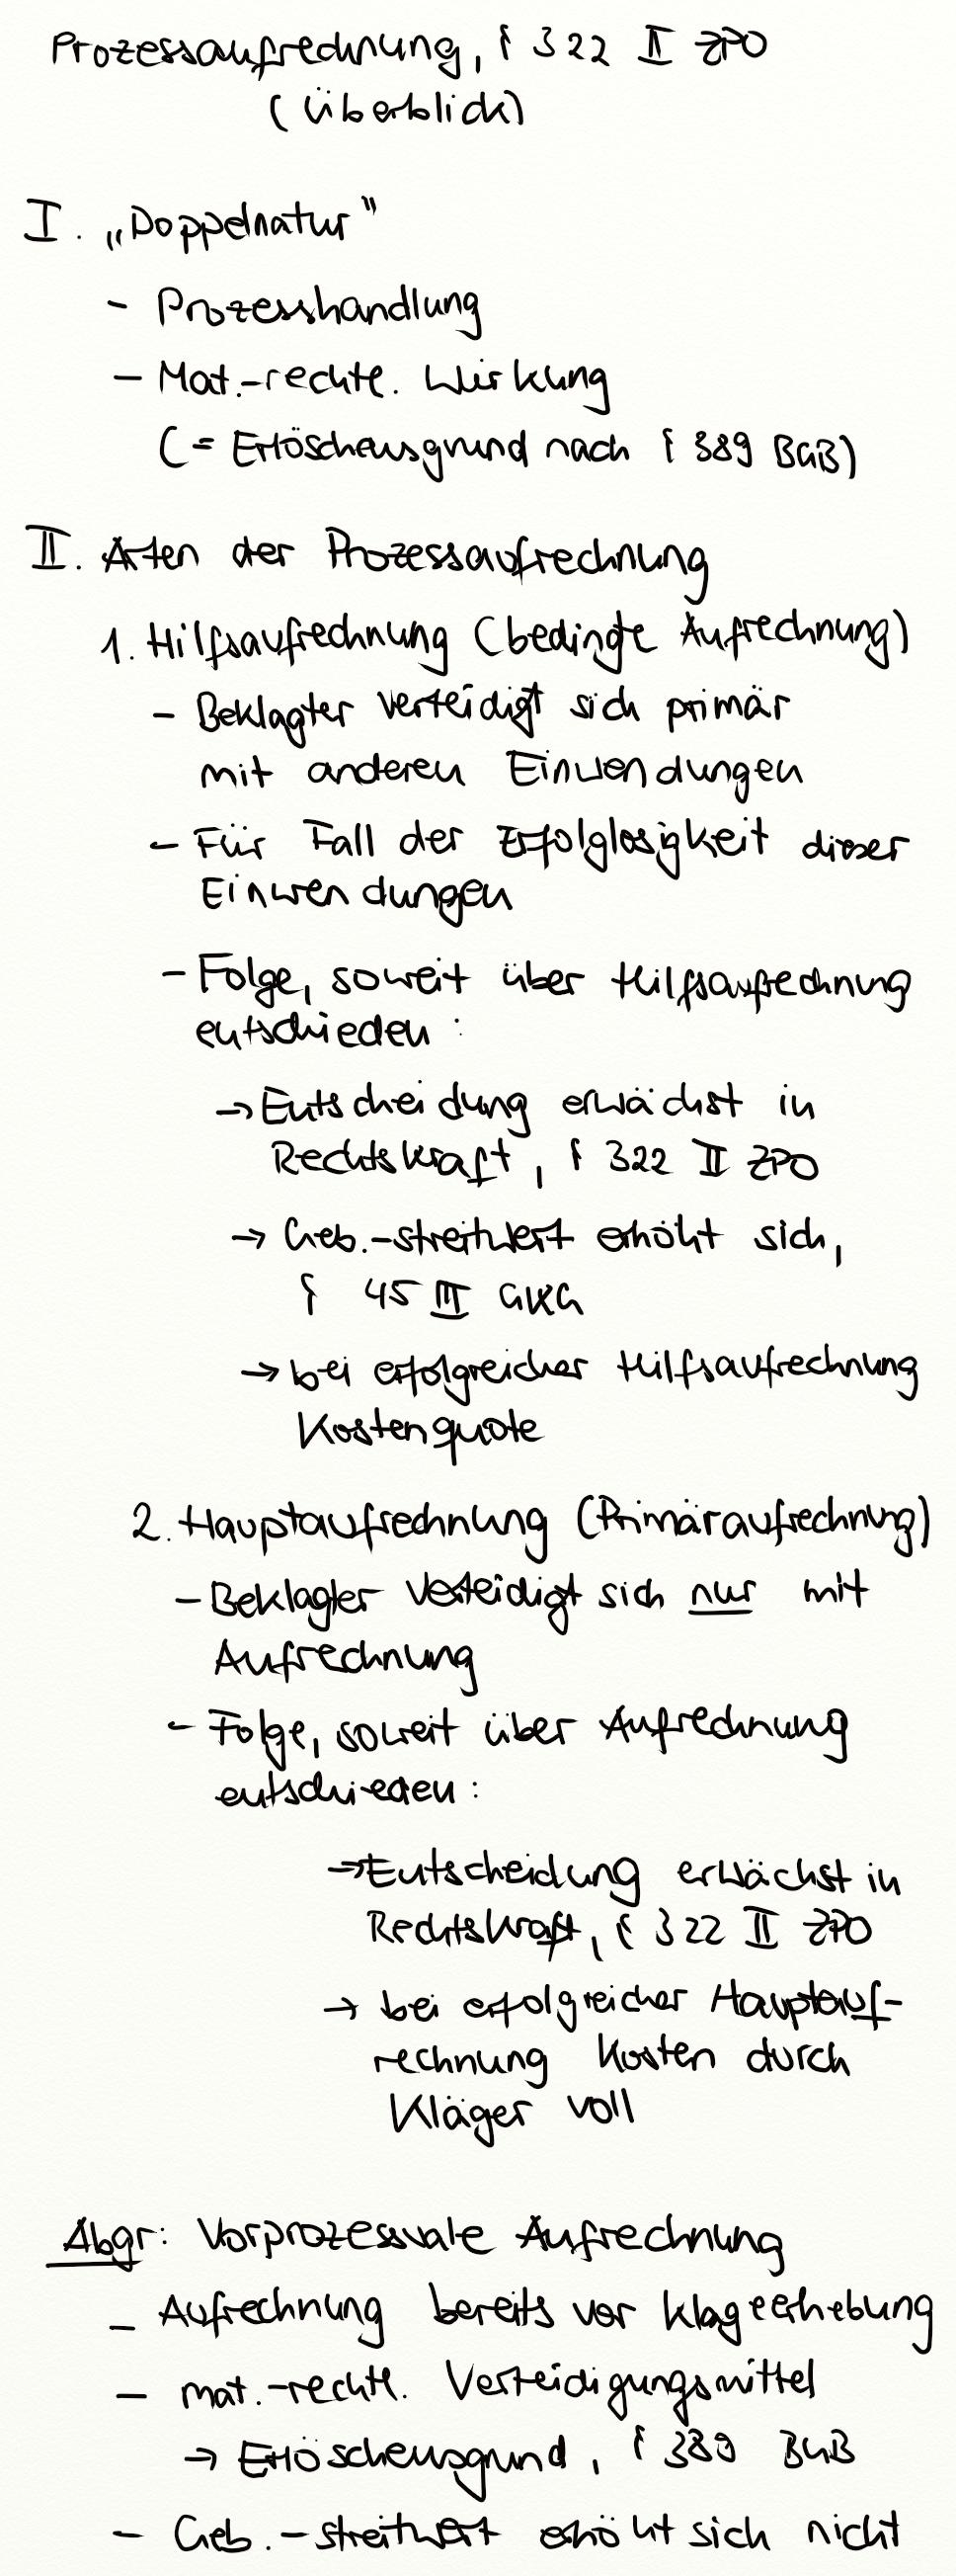 Prozessaufrechnung, § 322 II ZPO
(Überblick)
I. „Doppelnatur"
- Prozesshandlung
- Mat.-rechtl. Wirkung
(= Erlöschensgrund nach § 389 BGB)
II. Arten der Prozessaufrechnung
1. Hilfsaufrechnung (bedingte Aufrechnung)
- Beklagter verteidigt sich primär
mit anderen Einwendungen
- Für Fall der Erfolglosigkeit dieser
Einwendungen
- Folge, soweit über Hilfsaufrechnung
entschieden:
→ Entscheidung erwächst in
Rechtskraft, § 322 II ZPO
→ Geb.-streitwert erhöht sich,
§ 45 III GKG
→ bei erfolgreicher Hilfsaufrechnung
Kostenquote
2. Hauptaufrechnung (Primäraufrechnung)
- Beklagter verteidigt sich nur mit
Aufrechnung
- Folge, soweit über Aufrechnung
entschieden:
→ Entscheidung erwächst in
Rechtskraft, § 322 II ZPO
→ bei erfolgreicher Hauptauf-
rechnung Kosten durch
Kläger voll
Abgr: Vorprozessuale Aufrechnung
- Aufrechnung bereits vor Klageerhebung
- mat.-rechtl. Verteidigungsmittel
→ Erlöschensgrund, § 389 BGB
- Geb.-streitwert erhöht sich nicht